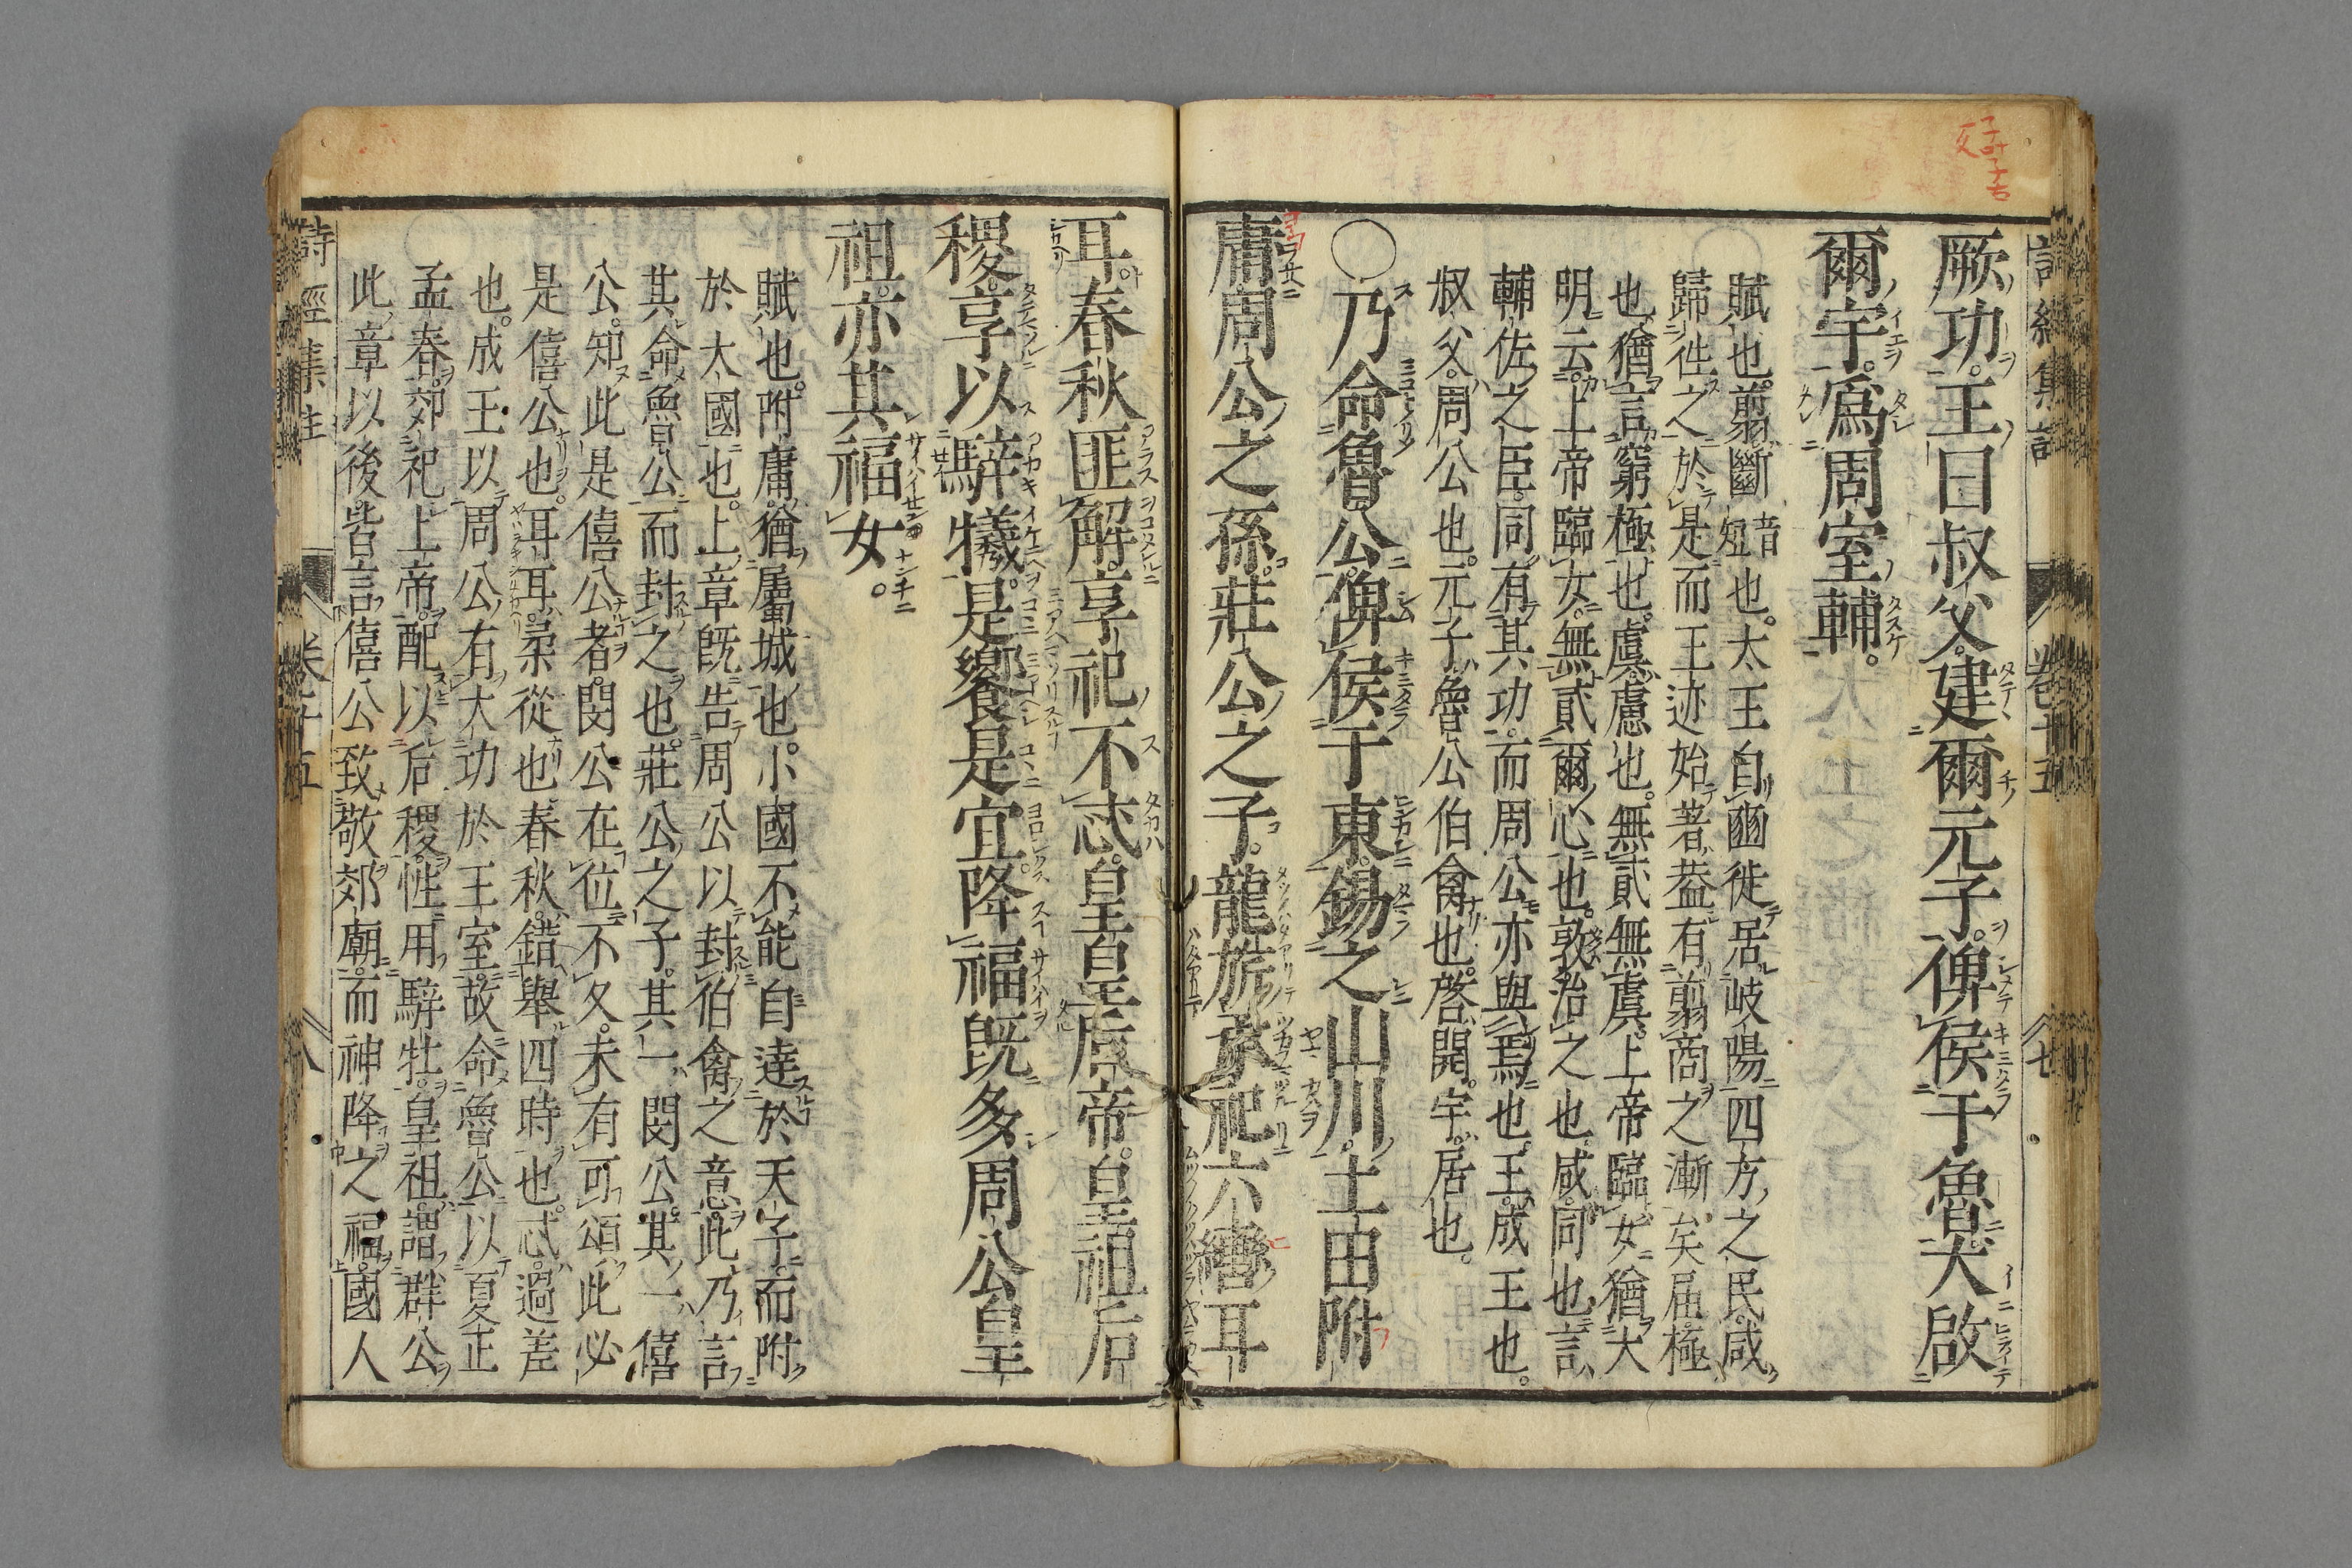 厥功。王曰叔父。建爾元子。俾侯于魯。大啟
爾宇。爲周室輔。
賦也。翦。斷音短也。大王自豳徙居岐陽。四方之民。咸
歸往之。於是而王迹始著。葢有翦商之漸矣。届。極
也。猶言窮極也。虞。慮也。無貳無虞。上帝臨女。猶大
明云。上帝臨女。無貳爾心也。敦。治之也。咸。同也。言
輔佐之臣。同有其功。而周公亦與焉也。王。成王也。
叔父。周公也。元子。魯公伯禽也。啓。開。宇。居也。
○乃命魯公。俾侯于東。錫之山川。土田附
庸。周公之孫。莊公之子。龍旂承祀。六轡耳
耳。春秋匪解。享祀不忒。皇皇后帝。皇祖后
稷。享以騂犧。是饗是宜。降福既多。周公皇
祖。亦其福女。
賦也。附庸。猶屬城也。小國不能自達於天子。而附
於大國也。上章既告周公以封伯禽之意。此乃言
其命魯公而封之也。莊公之子。其一閔公。其一僖
公。知此是僖公者。閔公在位不久。未有可頌。此必
是僖公也。耳耳。柔從也。春秋。錯舉四時也。忒。過差
也。成王以周公有大功於王室。故命魯公以夏正
孟春。郊祀上帝。配以后稷。牲用騂牡。皇祖。謂群公。
此章以後。皆言僖公致敬郊廟。而神降之福。國人
詩經集註
卷十五
七
詩經集註
卷十五
八